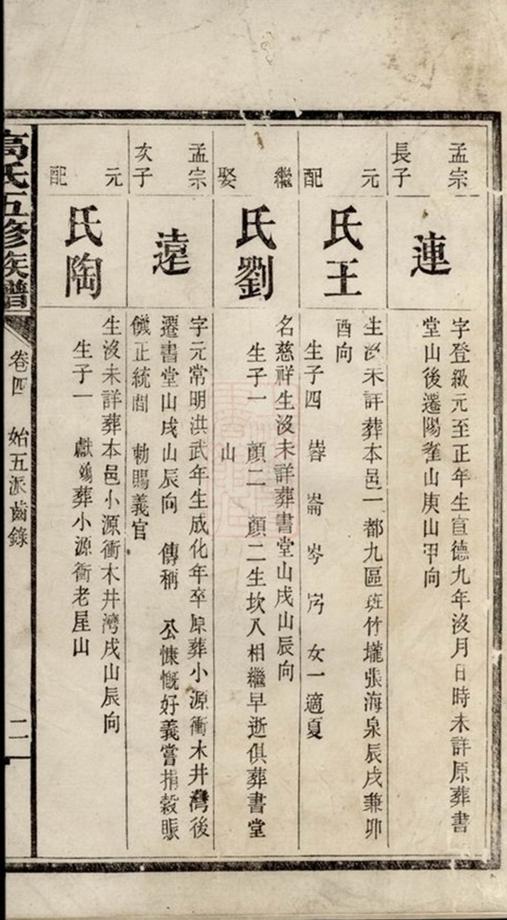 孟宗長子
連
字登級元至正年生宣德九年沒月日時未詳原葬書
堂山後遷陽雀山庚山甲向
元配
氏王
生沒未詳葬本邑一都九區班竹壠張海泉辰戌兼卯
酉向
生子四 崙 岑 女一適夏
繼娶
氏劉
名慈祥生沒未詳葬書堂山戌山辰向
生子一 顏二 顏二生坎入相繼早逝俱葬書堂
山
孟宗次子
遠
字元常明洪武年生成化年卒原葬小源衝木井灣後
遷書堂山戌山辰向 傳稱 公慷慨好義嘗捐穀賑
饑正統間 勅賜義官
元配
氏陶
生沒未詳葬本邑小源衝木井灣戌山辰向
生子一 獻 葬小源衝老屋山
高氏五修族譜
卷四 始五派齒錄
二